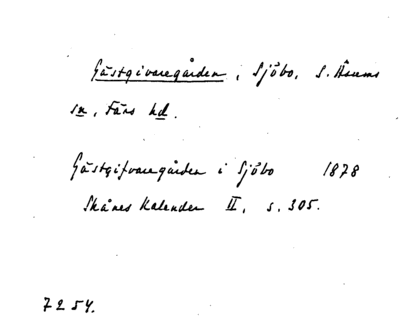 Gästgivaregården, Sjöbo, S. Åsums
sn, Färs hd.
Gästgifvaregården i Sjöbo 1878
Skånes Kalender II, s. 305.
7254.